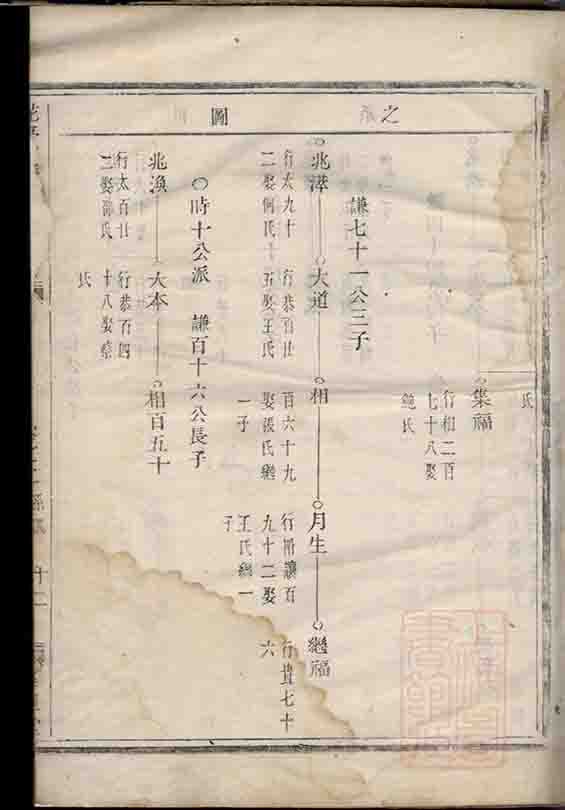 之
圖
氏
集福
行相二百
七十八娶
鮑氏
謙七十一公三子
兆漭 大道 相 月生 繼福
行太九十
二娶何氏
行恭百廿
五娶王氏
百六十九
娶張氏繼
一子
行讓百
九十二娶
王氏繼一
子
行貴七十
六
時十公派 謙百十六公長子
兆漁 大本 相百五十
行太百廿
二娶
氏
行恭百四
十八娶蔡
氏